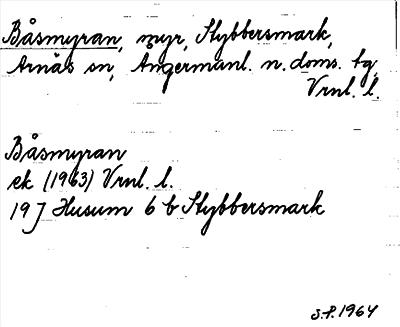 Båsmyran, myr, Stybbersmark,
Arnäs sn, Ångermanl. n. doms. tg,
Vrnl. l.
Båsmyran
ek (1963) Vrnl. l.
19 J Husum 6 b Stybbersmark
S.P. 1964